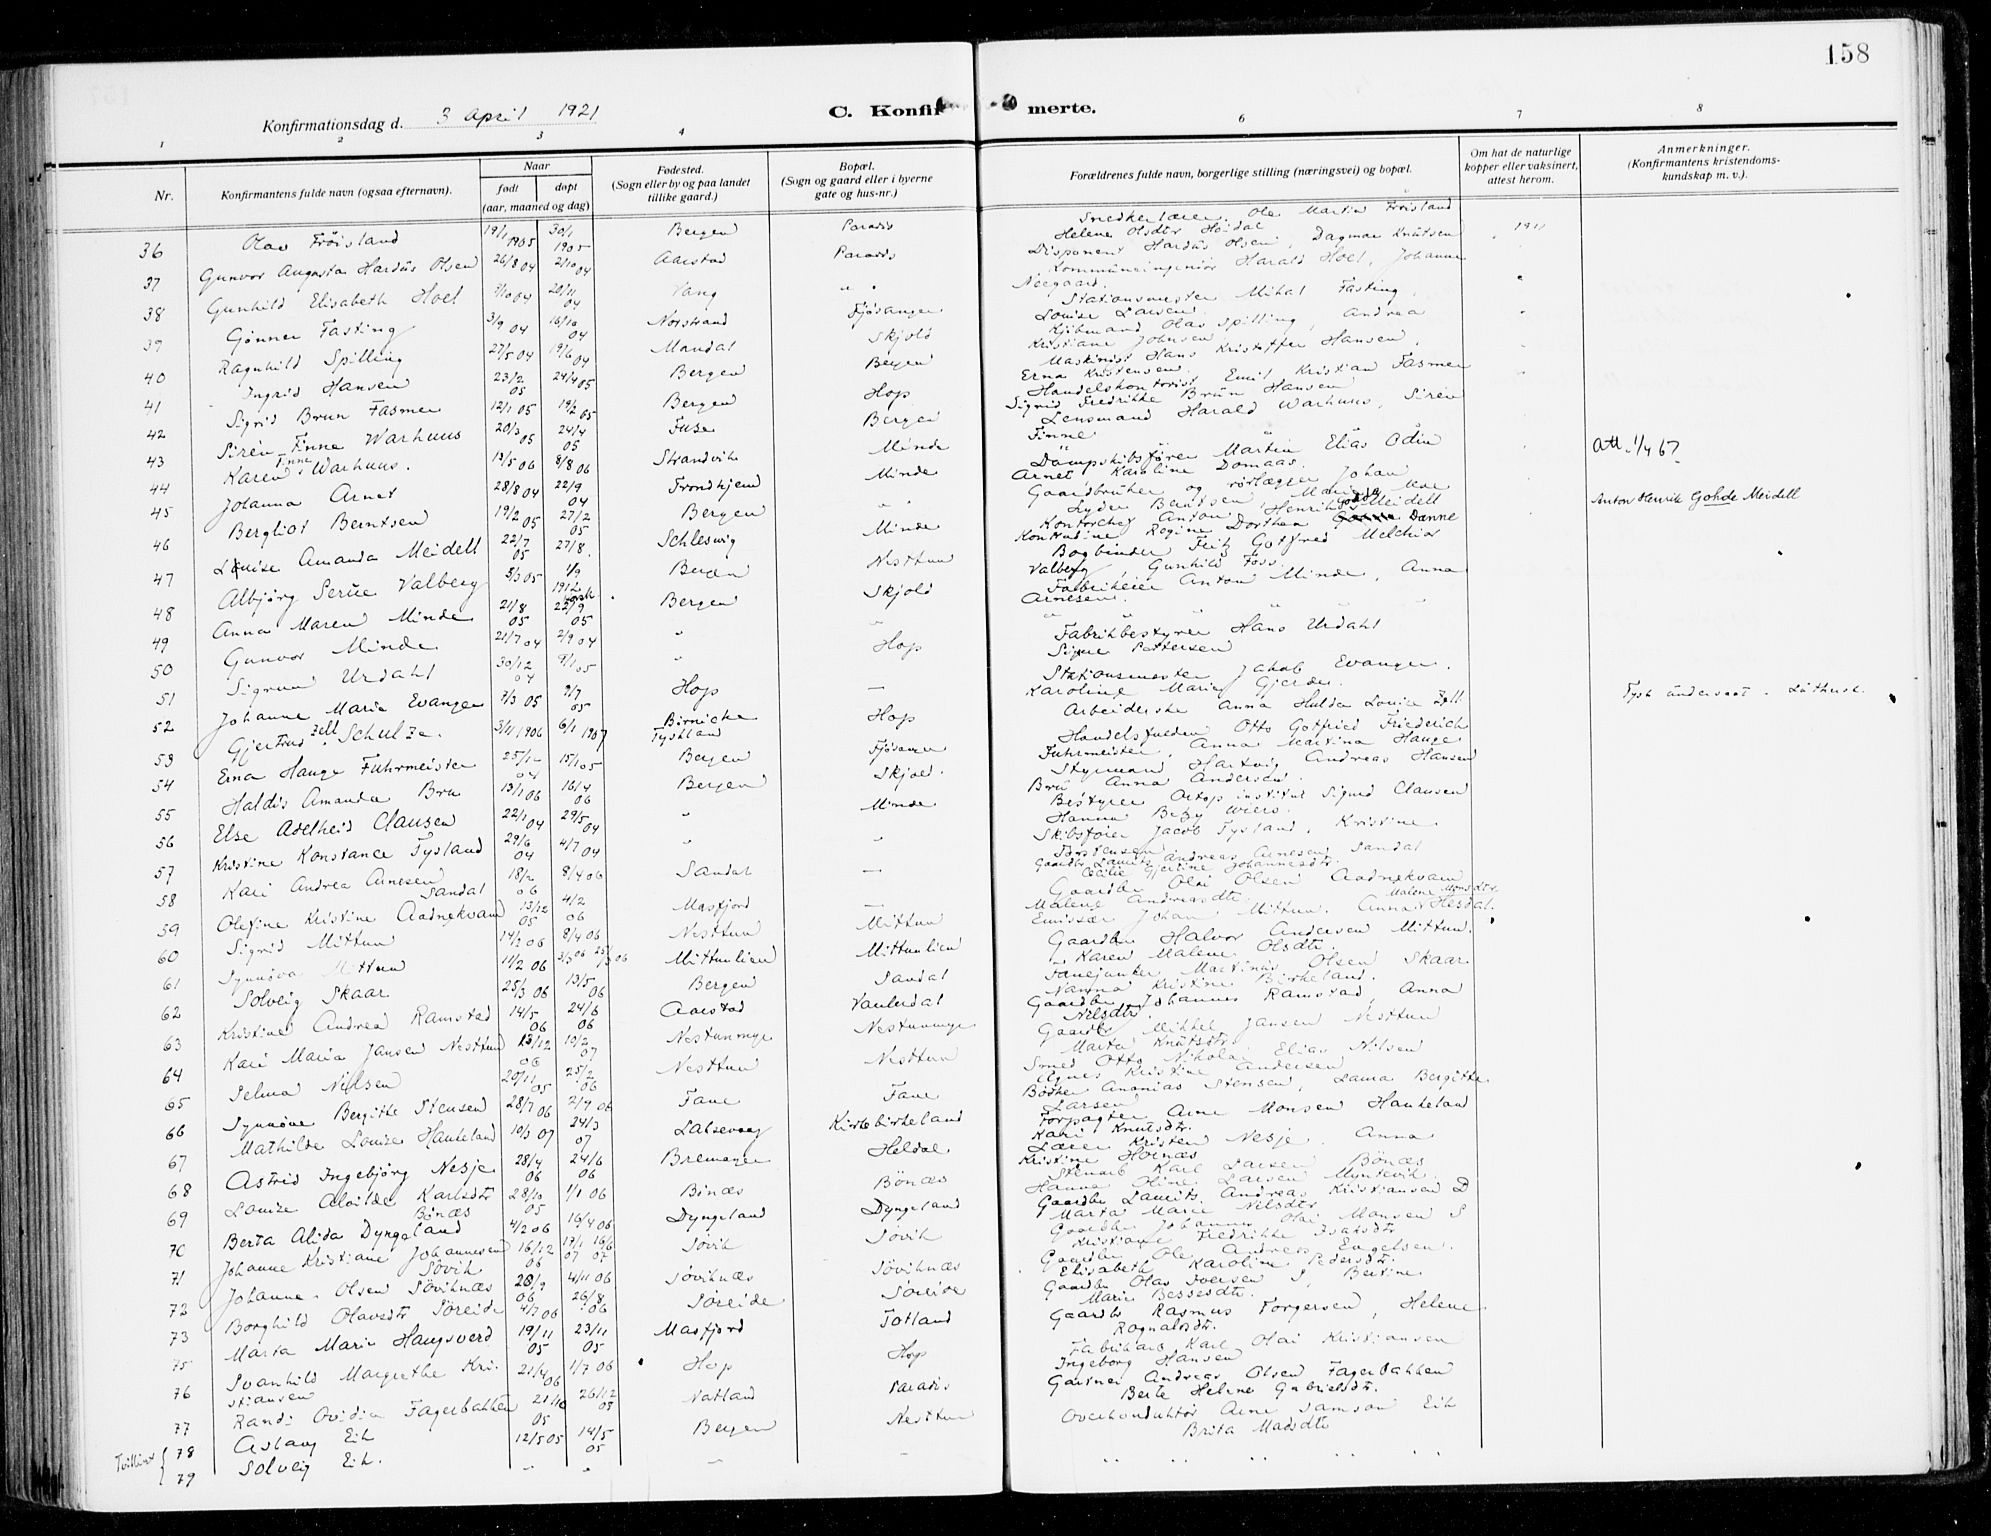 158
Konfirmationsdag d. 3 april 1921
C. Konfir merte.
1 2 3 4 6 7 8
Nr.
Konfirmantens fulde navn (ogsaa efternavn).
Naar
født
døpt
(aar, maaned og dag)
Fødested.
(Sogn eller by og paa landet
tillike gaard.)
Bopæl.
(Sogn og gaard eller i byerne
gate og hus-nr.)
Forældrenes fulde navn, borgerlige stilling (næringsvei) og bopæl.
Om hat de naturlige
kopper eller vaksinert,
attest herom.
Anmerkninger.
(Konfirmantens kristendoms-
kundskap m. v.).
36 Olav Frøisland 19/1 1905 30/1 1905 Bergen Paradis Ole Martin Frøisland Helene Olsdtr Høidal
37 Gunvor Augusta Hardus Olsen 26/8 04 2/10 04 Aarstad Paradis Disponent Hardus Olsen, Dagmar Knutsen
38 Gunhild Elisabeth Hoel 7/10 04 20/11 04 Vang " " Kommuneingeniør Harald Hoel, Johanne
39 Gønner Fasting 3/9 04 16/10 04 Norstrand Fjøsanger Stationsmester Mikal Fasting, Louise Larsen
40 Ragnhild Spilling 27/5 04 19/6 04 Mandal Skjold Kjøbmand Olav Spilling, Andrea Kristiane Johnsen
41 Ingrid Hansen 23/2 05 24/4 05 Bergen Bergen Maskinist Hans Kristoffer Hansen, Erna Kristensen
42 Sigrid Brun Fasmer 12/1 05 19/2 05 Bergen Hop Handelskontorist Emil Kristian Fasmer Sigrid Fredrikke Brun Hansen
43 Siren Finne Warhuus 20/3 05 24/4 05 Fuse Bergen Lensmand Harald Warhuus, Siren Finne
44 Karen Finne Warhuus. 13/5 06 8/8 06 Strandvik Minde Att. 1/4 67.
45 Johanna Arnet 28/8 04 22/9 04 Trondhjem Minde Dampskibsfører Martin Elias Odin Arnet, Karoline Domaas.
46 Bergliot Berntsen 19/2 05 27/2 05 Bergen " Gaardbruker og rørlægger Johan Lyder Berntsen, Marie Moe
47 Louise Amanda Meidell 22/7 05 27/8 Schleswig Minde Kontorchef Anton Henrik Gohde Meidell Regine Dorthea Danne Anton Henrik Gohde Meidell
48 Albjørg Serine Valberg 5/3 05 1/9 1912 Bergen Nesttun Bogbinder Fritz Gotfred Melchior Valberg, Gunhild Foss.
49 Anna Maren Minde 21/8 05 22/9 05 Bergen Skjold Fabrikeier Anton Minde, Anna Arnesen.
50 Gunvor Minde 21/7 04 2/9 04 " " " "
51 Sigrun Urdahl 30/12 04 9/1 05 " Hop Fabrikbestyrer Hans Urdahl Signe Pettersen
52 Johanne Marie Evanger 7/3 05 9/7 05 Hop — Stationsmester Jakob Evanger. Karoline Marie Gjerde.
53 Gjertrud Zell Schulze. 3/11 1906 6/1 1907 Birnicke Tyskland Hop Arbeiderske Anna Hulda Louise Zell Tysk undersaat. Luthersk.
54 Erna Hauge Fuhrmeister 25/12 04 15/1 05 Bergen Fjøsanger Handelsfuldm. Otto Gotfried Friederich Fuhrmeister, Anna Martina Hauge.
55 Haldis Amanda Bru 13/1 06 16/4 06 Bergen Skjold. Styrmand Hartvig Andreas Hansen Bru Anna Andersen.
56 Else Adelheid Clausen 22/1 04 29/5 04 " Minde Bestyrer Ortop. institut Sigurd Clausen Hanna Betzy Wiers.
57 Kristine Konstance Tysland 29/6 04 4/7 04 " " Skibsfører Jacob Tysland, Kristine Torstensen
58 Kari Andrea Arnesen Sandal 18/2 06 8/4 06 Sandal — Gaardbr Laurits Andreas Arnesen Sandal Cecilie Gjertine Johannesdtr.
59 Olefine Kristine Aadnekvam 13/12 05 4/2 06 Masfjord — Gaardbr Olai Olsen Aadnekvam Malene Andreasdtr. Malene Monsdtr.
60 Sigrid Mittun 14/2 06 8/4 06 Nesttun Mittun Emissær Johan Mittun. Anna Hesdal.
61 Synnøva Mittun 11/2 06 Mittunlien Mittunlien Gaardbr Halvor Andersen Mittun. Karen Malene Olsdtr.
62 Solveig Skaar 25/3 06 13/5 06 Bergen Sandal Fanejunker Martinus Olsen Skaar Nanna Kristine Birkeland.
63 Kristine Andrea Ramstad 14/5 06 24/6 06 Aarstad Vanlerdal Gaardbr Johannes Ramstad, Anna Nilsdtr.
64 Kari Maria Jansen Nesttun 13/12 06 10/2 07 Nestunmyr Nestunmyr Gaardbr Mikkel Jansen Nesttun Marta Knutsdtr.
65 Selma Nilsen 20/11 05 25/2 06 Nesttun Nesttun Smed Otto Nikolai Elias Nilsen Agnes Kristine Andersen
66 Synnøve Bergitte Stensen 28/7 06 2/9 06 Fane Fane Bødker Ananias Stensen, Laura Bergitte Larsen
67 Mathilde Louise Haukeland 10/3 07 24/3 07 Laksevaag Kirkebirkeland Forpagter Arne Monsen Haukeland Kari Knutsdtr.
68 Astrid Ingebjørg Nesje 28/4 06 24/6 06 Bremanger Heldal Lærer Kristen Nesje. Anna Kristine Hovnæs
69 Louise Alvilde Karlsdtr Bönæs 28/10 05 1/1 06 Bönæs Bönæs Stenarb Karl Larsen Bönæs Hanna Oline Larsen Myntevik
70 Berta Alida Dyngeland 4/2 06 16/4 06 Dyngeland Dyngeland Gaardbr Laurits Andreas Kristiansen D Marta Marie Nilsdtr.
71 Johanne Kristiane Johannesen Søvik 16/12 06 Søvik Søvik Gaardbr Johannes Olai Monsen S Kristiane Fredrikke Isaksdtr
72 Johanne Olsen Søviknæs 28/9 06 4/11 06 Søviknæs Søviknæs Gaardbr Ole Andreas Engelsen. Elisabeth Karoline Pedersdtr.
73 Borghild Olavsdtr Søreide 4/7 06 26/8 06 Søreide Søreide Gaardbr Olav Iversen S, Bertine Marie Bessesdtr.
Marta Marie Haugsverd 19/11 05 23/11 05 Masfjord Totland Gaardbr Rasmus Torgersen, Helene Rognaldsdtr.
75 Svanhild Margrethe Kristiansen 21/4 06 1/7 06 Hop Hop Fabrikarb Karl Olai Kristiansen Ingeborg Hansen
76
77 Randi Ovidia Fagerbakken 21/10 05 26/12 05 Natland Paradis Gartner Andreas Olsen Fagerbakken Berte Helene Gabrielsdtr.
Tvillinger { 78 Aslaug Eik 12/5 05 14/5 05 Bergen Nesttun Overkonduktør Arne Samson Eik Brita Madsdtr
79 Solveig Eik. " " " " " "